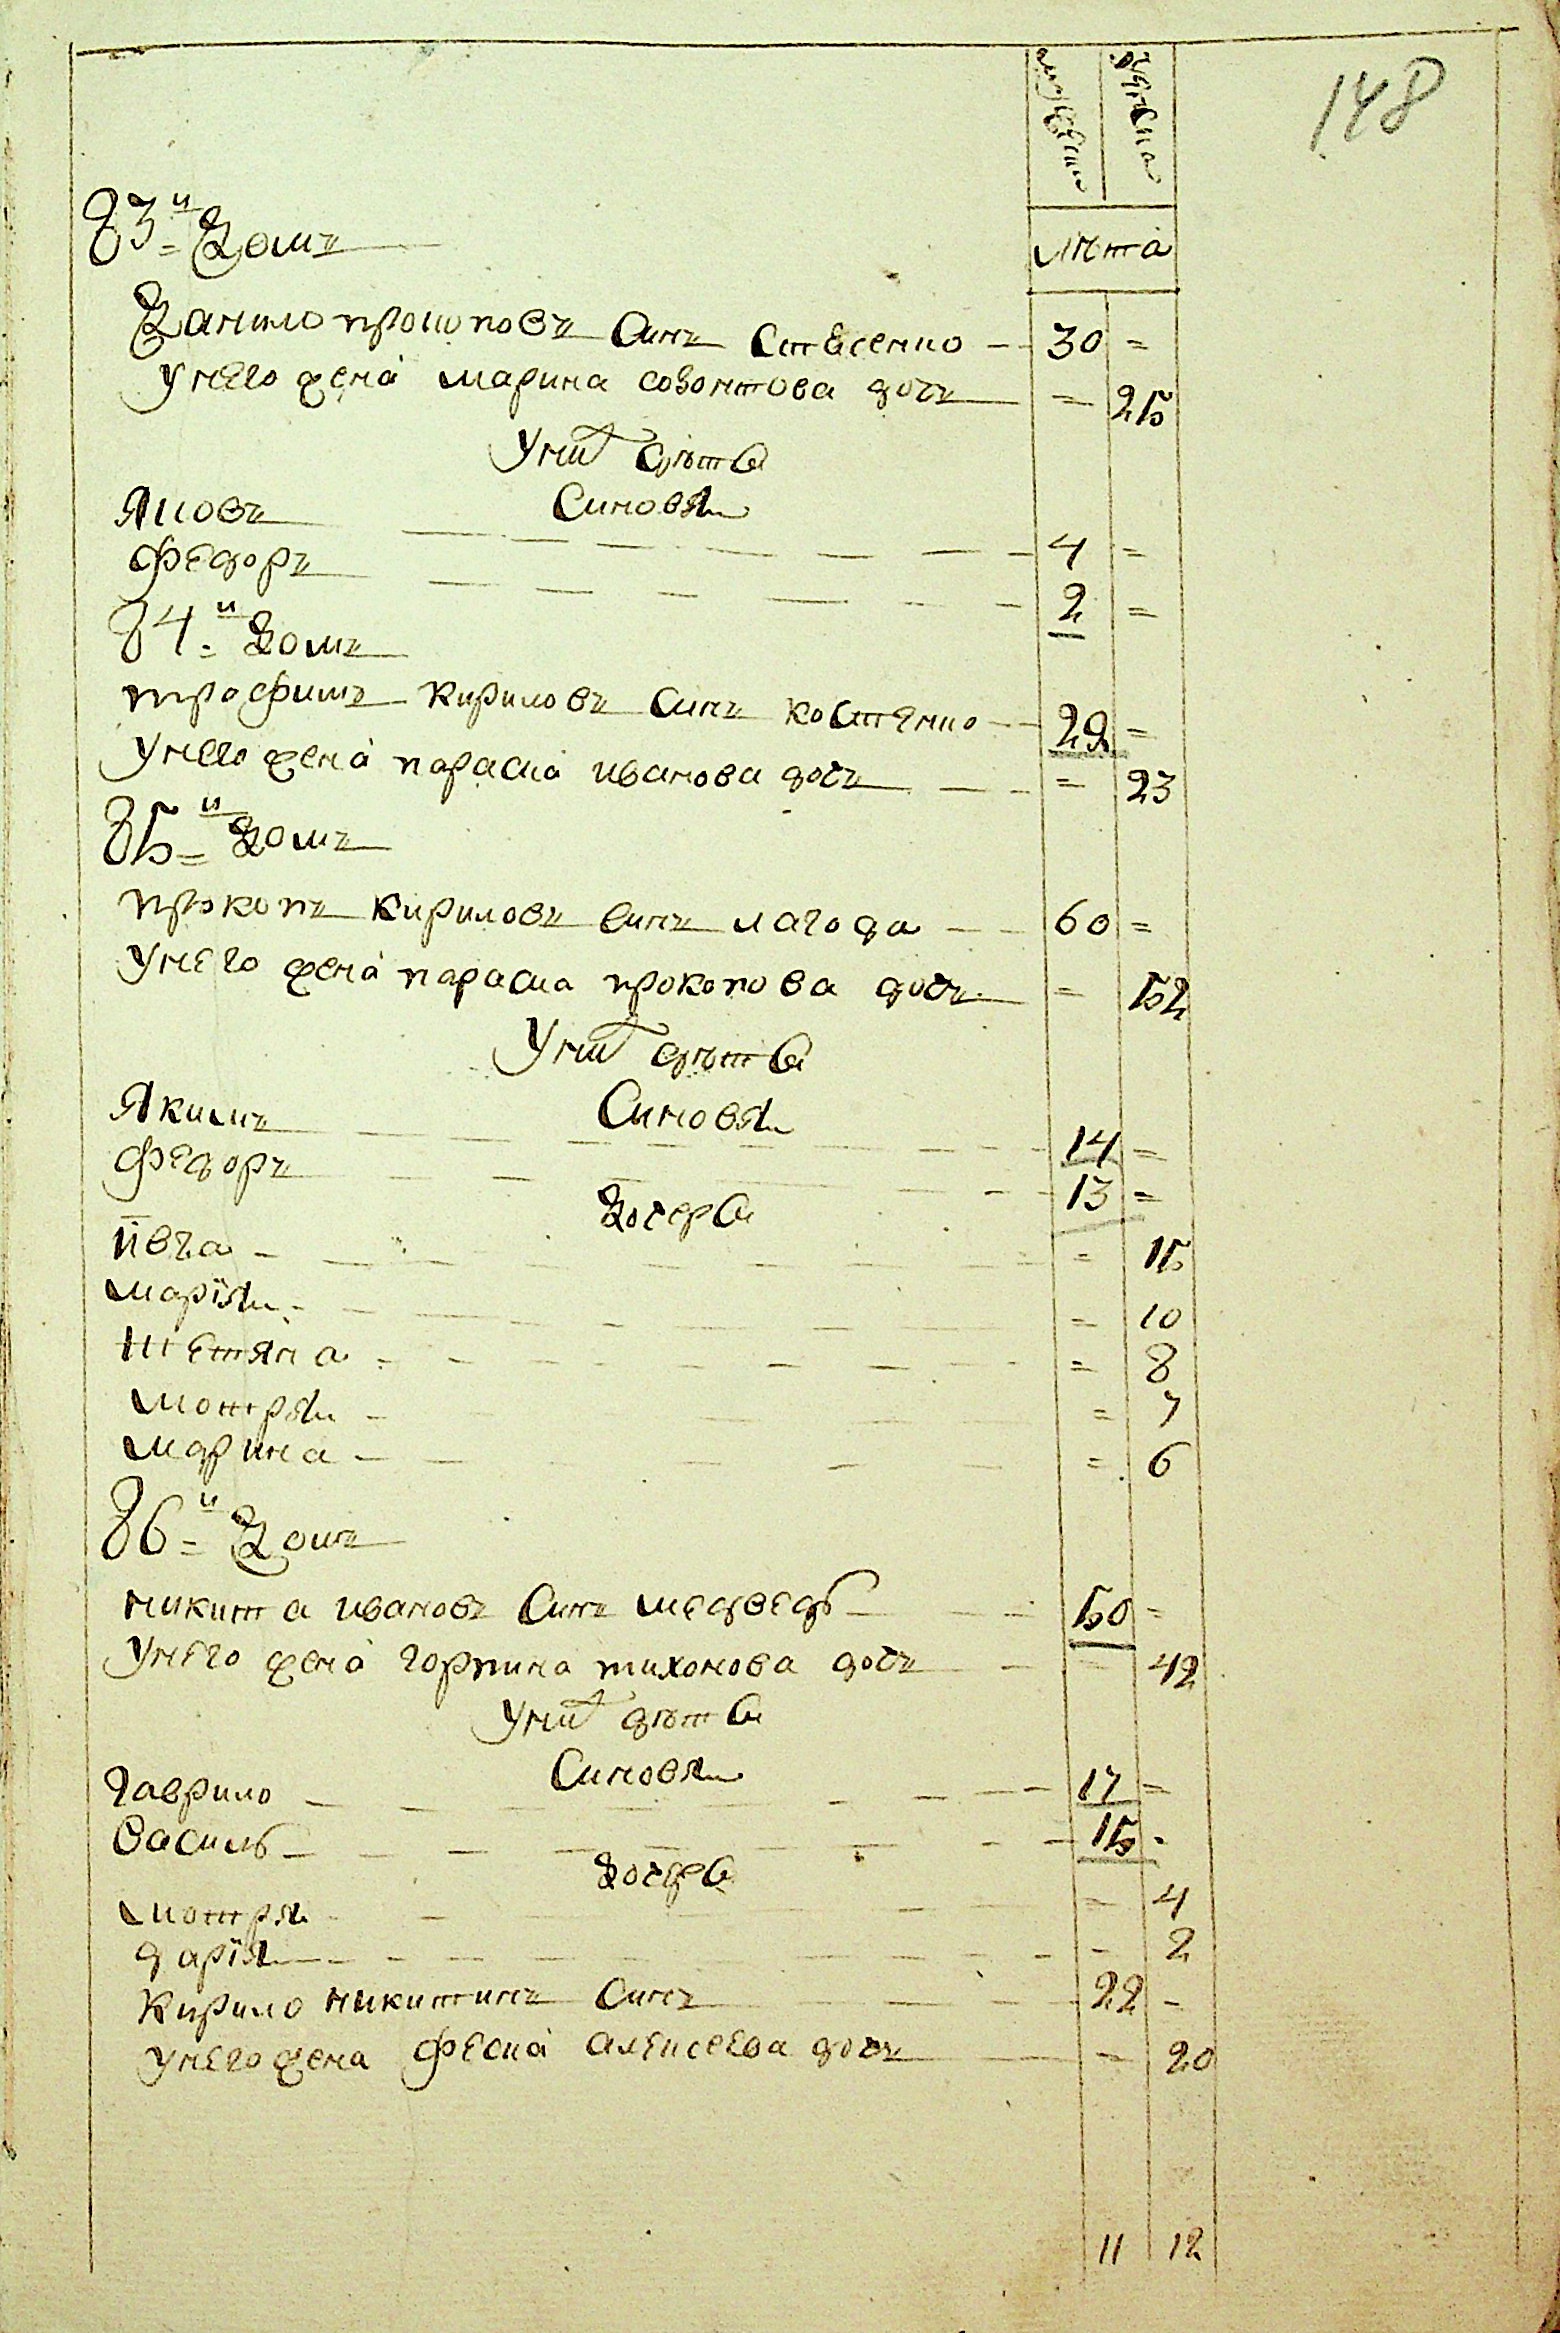 148
мужеска женска
лѣта
83й домъ
Данило прокоповъ синъ Стеценко 30 =
унего жена марина созонтова дочъ = 25
у них дѣти
Синовя
Яковъ 4 =
Федоръ 2 =
84й домъ
трофимъ кириловъ синъ костенко 29 =
унего жена параска иванова дочъ = 23
85й домъ
прокопъ кириловъ синъ лагода 60 =
унего жена параска прокопова дочъ = 52
у них дѣти
Синовя
Якимъ 14 =
Федоръ 13 =
дочери
Ївга = 15
марїя = 10
тетяна = 8
мотря = 7
марина = 6
86й домъ
никита ивановъ синъ медведь 50 =
унего жена горпина тихонова дочъ = 42
у них дѣти
Синовя
гаврило 17 =
василь 15 =
дочери
мотря = 4
дарїя = 2
кирило никитинъ синъ 22 =
унего жена феска алексеева дочъ = 20
11 12